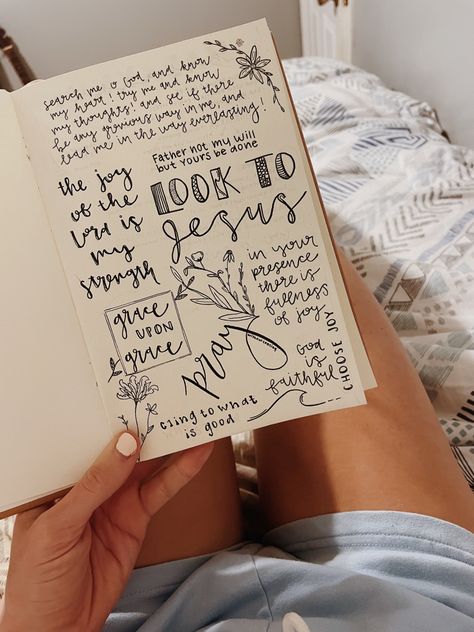 search me o God, and know
my heart! try me and know
my thoughts! and see if there
be any grievous way in me, and
lead me in the way everlasting!
Father not my will
but yours be done
the joy
of the
Lord is
my
strength
LOOK TO
Jesus
in your
presence
there is
fullness
of joy
grace
UPON
grace
pray
God
is
faithful
CHOOSE JOY
cling to what
is good